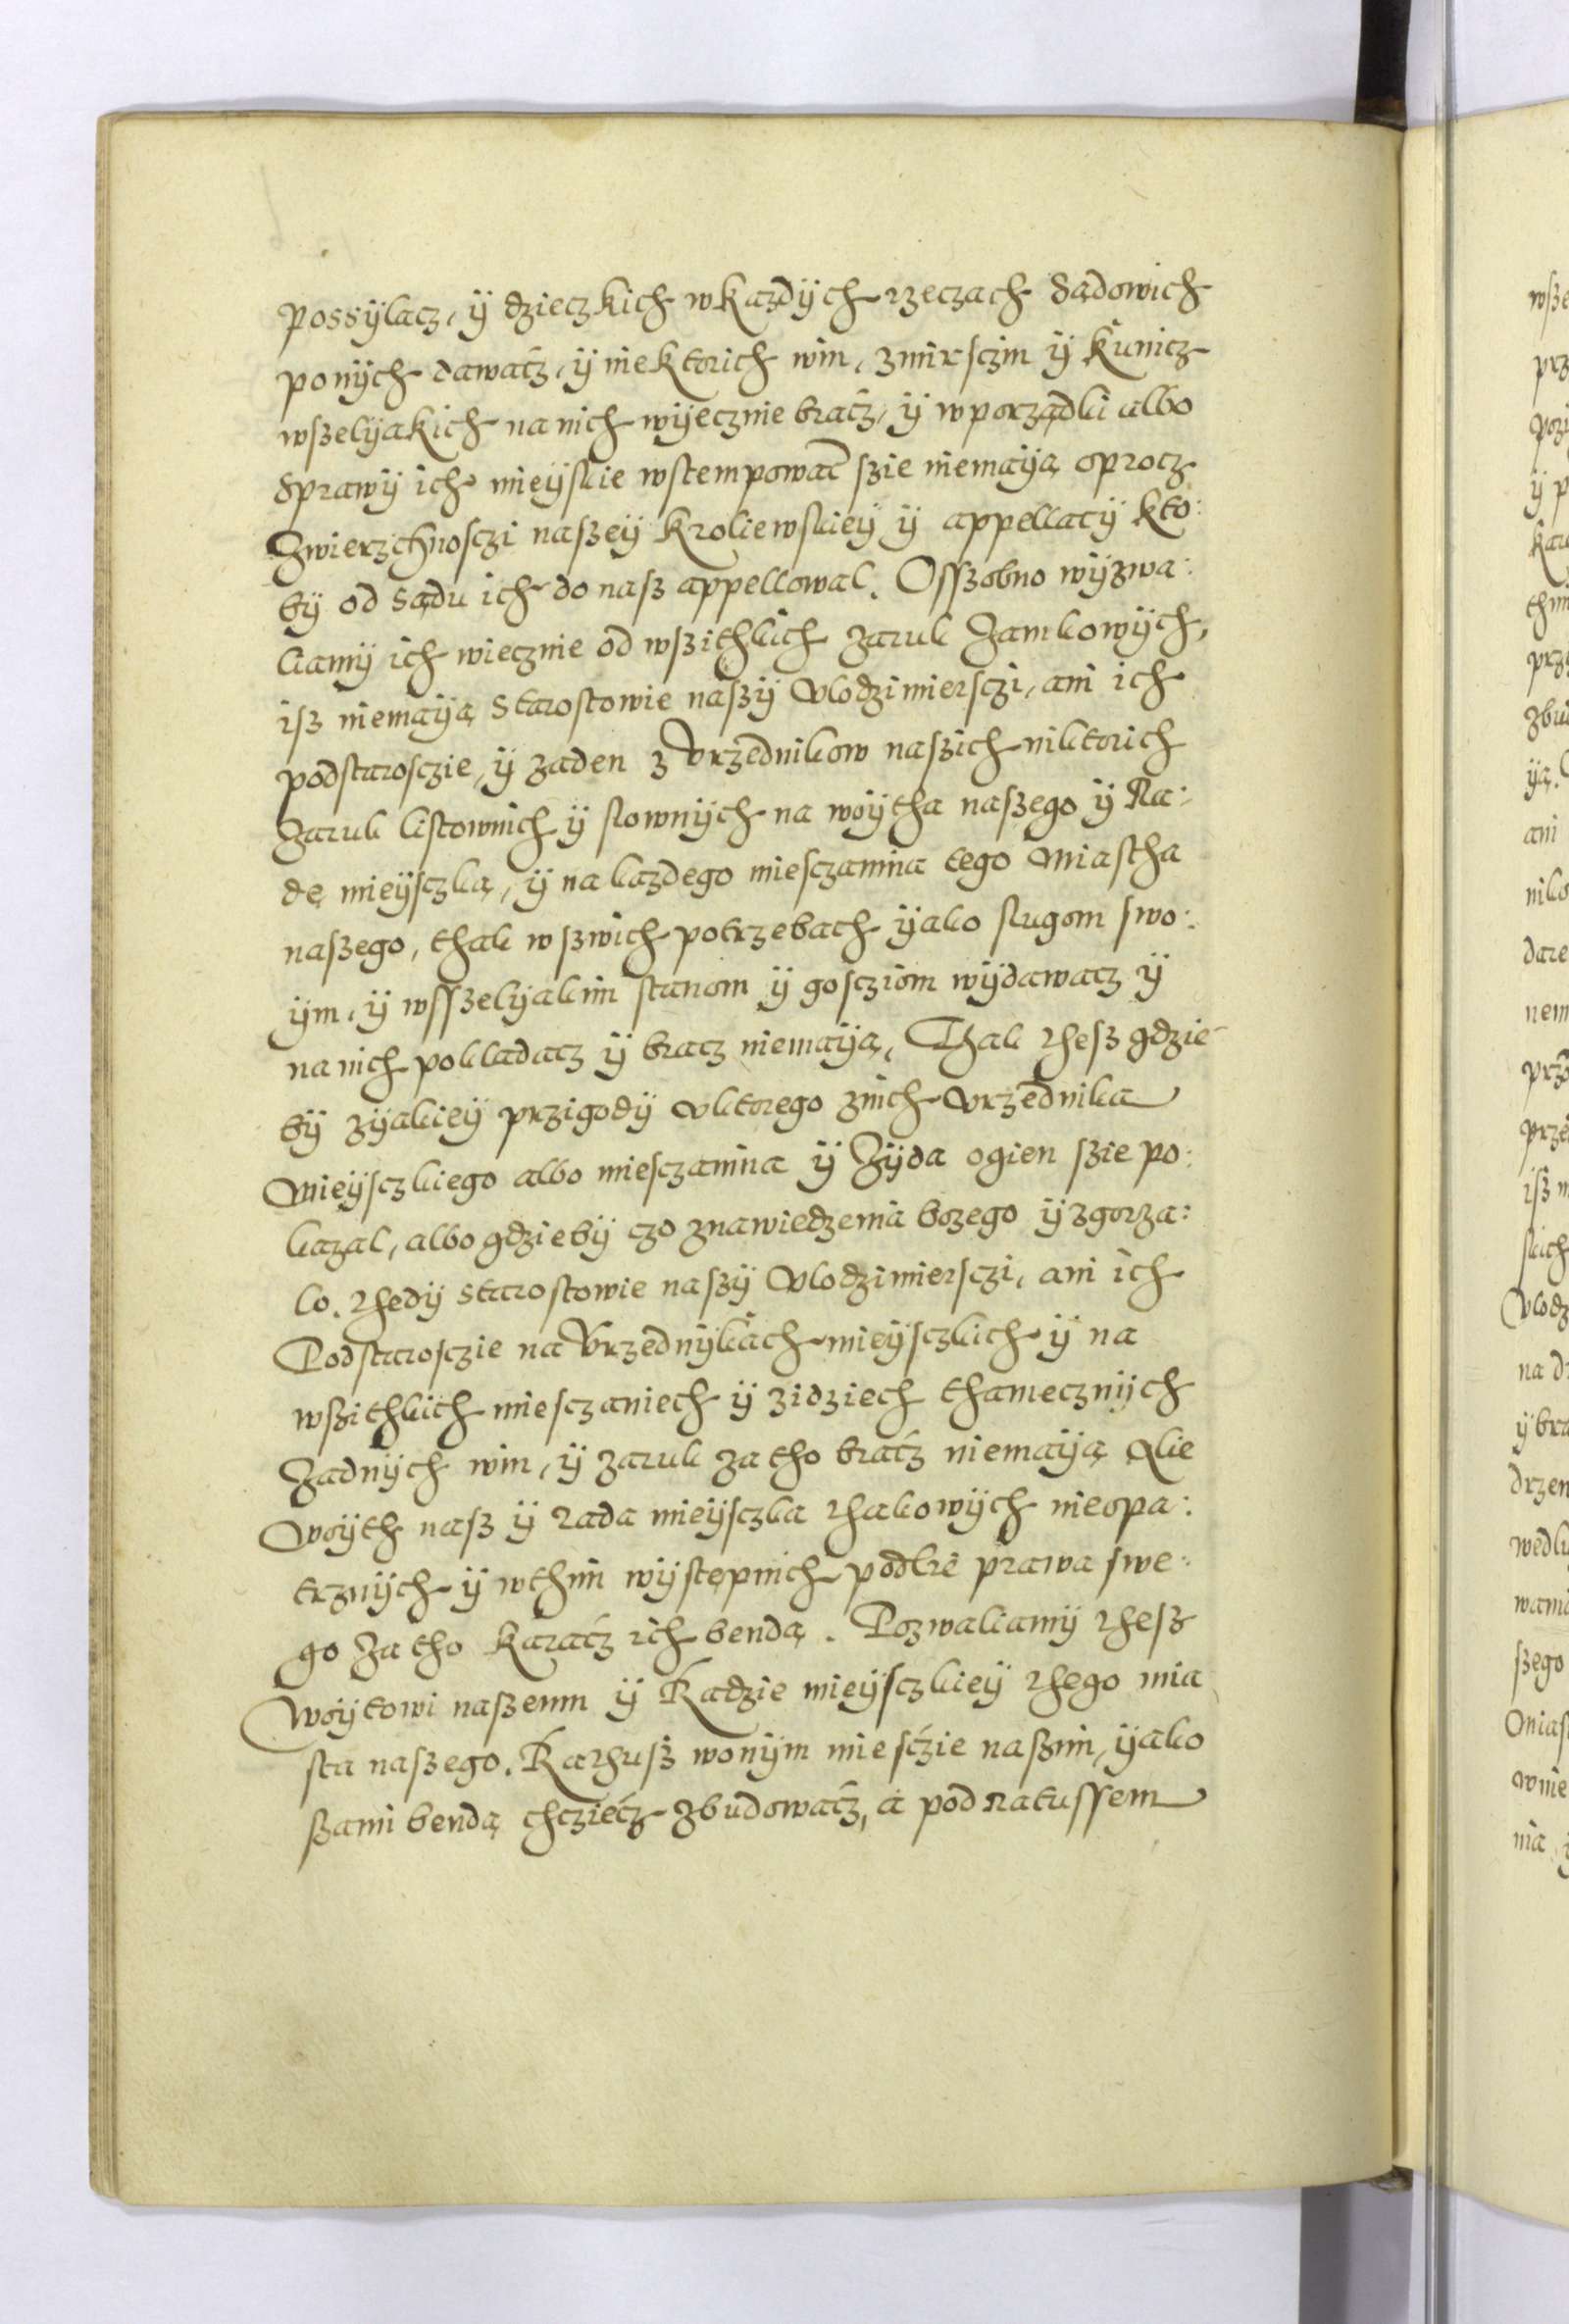 possÿlacz, ÿ dzieczkich w kazdÿch rzeczach sądowich
ponÿch dawacz, ÿ niektorich win, zmirsczin ÿ kunicz
wszelÿakich na nich wÿecznie bracz, ÿ w porządki albo
sprawÿ ich mieÿskie wstempowac szie niemaÿą oprocz
Zwierzchnosczi naszeÿ kroliewskieÿ ÿ appellacÿ kto:
bÿ od sądu ich do nasz appellowal. Osszobno wÿzwa:
liamÿ ich wiecznie od wszithkich zaruk Zamkowÿch,
isz niemaÿą Starostowie naszÿ Vlodzimiersczi, ani ich
podstarosczie, ÿ zaden z Vrzednikow naszich niktorich
Zaruk listownich ÿ slownÿch na woÿtha naszego ÿ Ra:
dę mieÿsczką, ÿ na kazdego miesczanina tego Miastha
naszego, thak w szwich potrzebach ÿako slugom swo:
ÿm, ÿ wsszelÿakim stanom ÿ gosczióm wÿdawacz ÿ
na nich pokladacz ÿ bracz niemaÿą, Thak thesz gdzie
bÿ zÿakieÿ przigodÿ v ktorego znich Vrzednika
Mieÿsczkiego albo miesczanina ÿ Zÿda ogien szie po:
kazal, albo gdziebÿ czo znawiedzenia bozego ÿ zgorza:
lo. thedÿ Starostowie naszÿ Vlodzimiersczi, ani ich
Podstarosczie na Vrzednÿkach mieÿsczkich ÿ na
wszithkich miesczaniech ÿ zidziech thamecznÿch
Zadnÿch win, ÿ zaruk za tho bracz niemaÿą Alie
Woÿth nasz ÿ Rada mieÿsczka thakowÿch nieopa:
trznÿch ÿ wthim wÿstępnich podle prawa swe:
go za tho karacz ich bendą. Pozwaliamÿ thesz
Woÿtowi naszemu ÿ Radzie mieÿsczkieÿ thego mia
sta naszego. Rathusz wonÿm miesczie naszim, ÿako
szami bendą chcziecz zbudowacz, a pod Ratussem